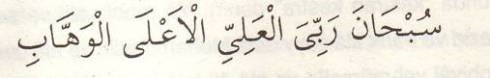 سُبْحَانَ رَبِّيَ الْعَلِيِّ الْاَعْلَى الْوَهَّابِ